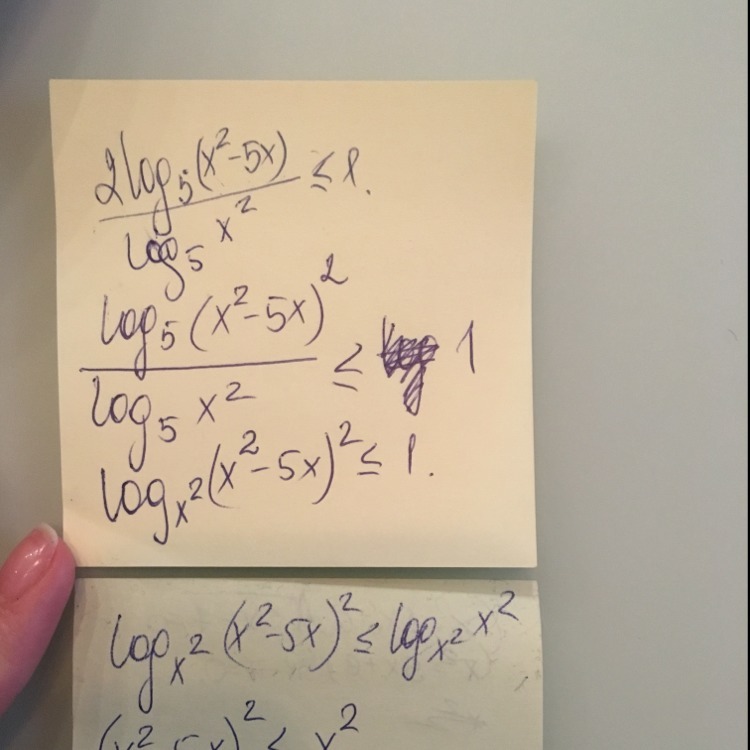 2log₅(x²-5x) / log₅ x² ≤ 1.
log₅(x²-5x)² / log₅ x² ≤ 1
logₓ²(x²-5x)² ≤ 1.
logₓ²(x²-5x)² ≤ logₓ² x²
(x²-5x)² ≤ x²